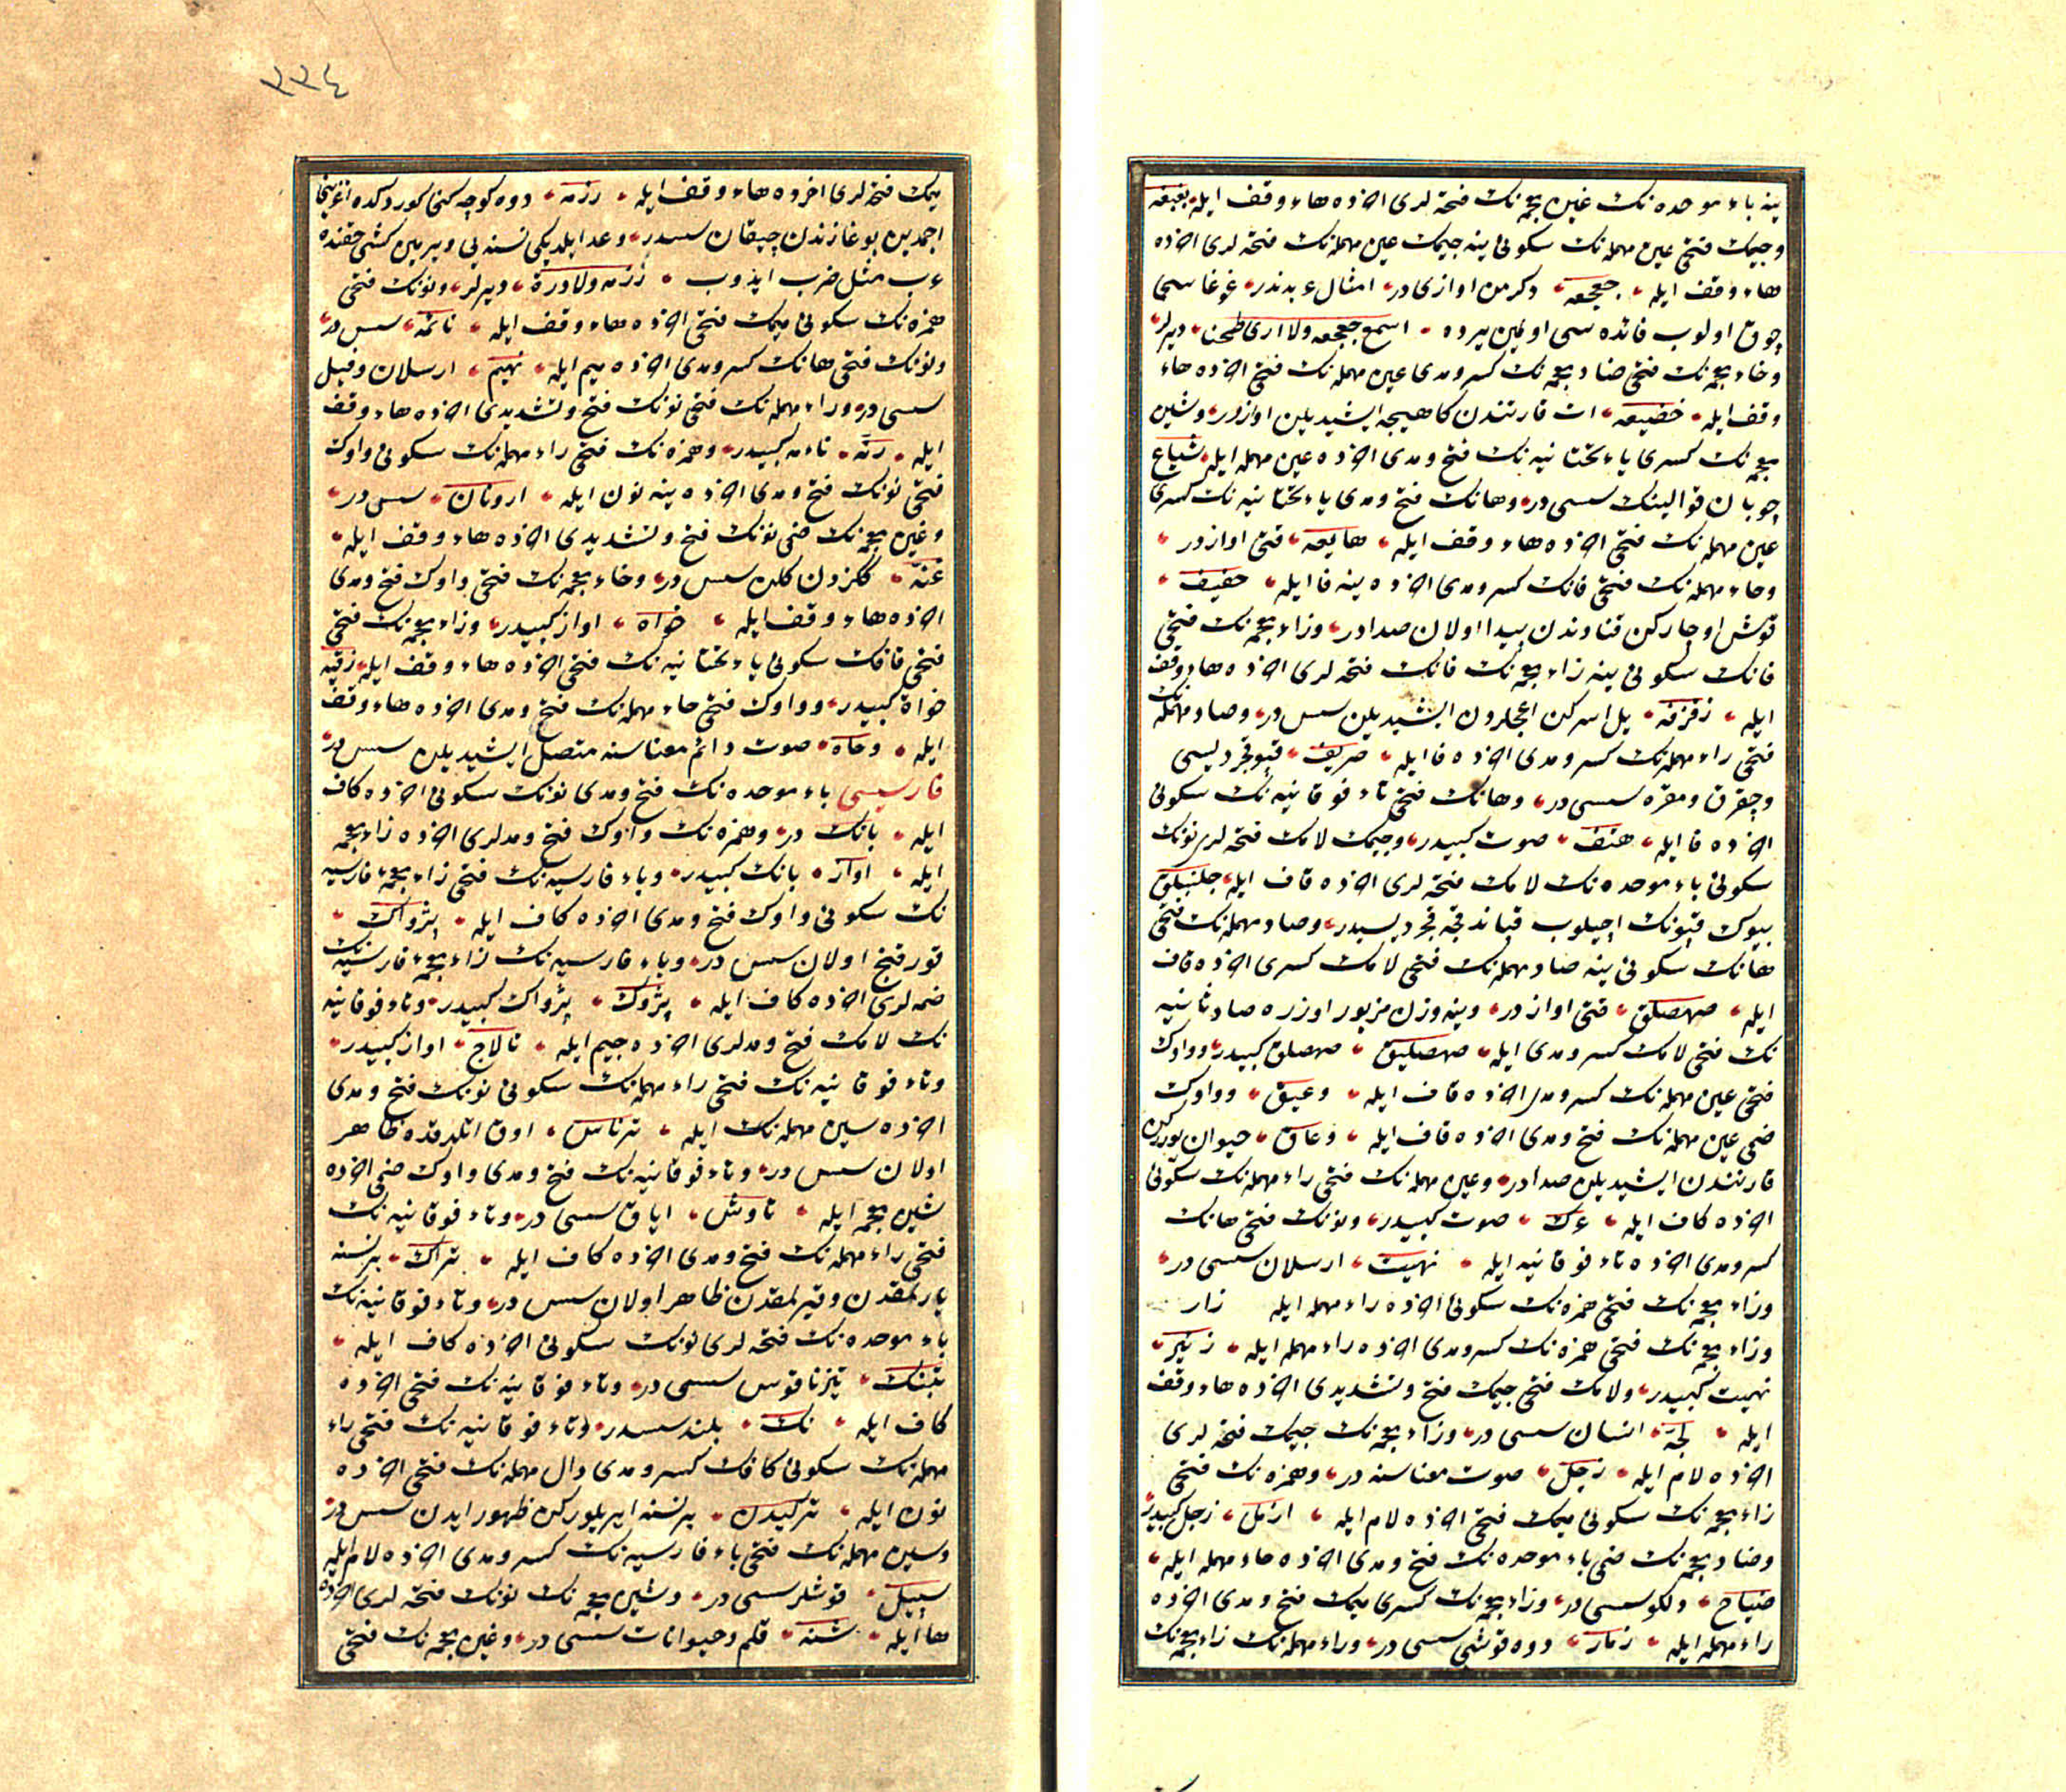 ینه باء موحده نك غین معجمه نك فتحه لری اخرده هاء وقف ایله بغبغه
وجیمك فتحی عین مهمله نك سكونی ینه جیمك عین مهمله نك فتحه لری اخرده
هاء وقف ایله جعجعه دكرمن اوازی در امثال عربدندر غوغاسی
چوق اولوب فائده سی اولمین یرده اسمع جعجعه ولا اری طحنا دیرلر
وخاء معجمه نك فتحی ضاد معجمه نك كسر ومدی عین مهمله نك فتحی اخرده هاء
وقف ایله خضیعه ات قارنندن كاهیجه ایشیدیلن اوازدر وشین
معجمه نك كسری یاء تحتانیه نك فتح ومدی اخرده عین مهمله ایله شیاع
چوبان قوالینك سسی در وهانك فتح ومدی یاء تحتانیه نك كسری
عین مهمله نك فتحی اخرده هاء وقف ایله هایعه قتی اوازدر
وحاء مهمله نك فتحی فانك كسر ومدی اخرده ینه فا ایله حفیف
قوش اوچاركن قنادندن پیدا اولان صدادر وزاء معجمه نك فتحی
فانك سكونی ینه زاء معجمه نك فانك فتحه لری اخرده هاء وقف
ایله زفزفه یل اسركن اغجلردن ایشیدیلن سس در وصاد مهمله نك
فتحی راء مهمله نك كسر ومدی اخرده فا ایله صریف قپو غجردیسی
وچقرق ومقره سسی در وهانك فتحی تاء فوقانیه نك سكونی
اخرده فا ایله هتف صوت كبیدر وجیمك لامك فتحه لری نونك
سكونی باء موحده نك لامك فتحه لری اخرده قاف ایله جلنبلق
بیوك قپونك اچیلوب قپاندقجه غجردیسیدر وصاد مهمله نك فتحی
هانك سكونی ینه صاد مهمله نك فتحی لامك كسری اخرده قاف
ایله صهصلق قتی اوازدر وینه وزن مزبور اوزره صاد ثانیه
نك فتحی لامك كسر ومدی ایله صهصلیق صهصلق كبیدر وواوك
فتحی عین مهمله نك كسر ومدی اخرده قاف ایله وعیق وواوك
ضمی عین مهمله نك فتح ومدی اخرده قاف ایله وعاق حیوان یوركن
قارنندن ایشیدیلن صدادر وعین مهمله نك فتحی راء مهمله نك سكونی
اخرده كاف ایله عرك صوت كبیدر ونونك فتحی هانك
كسر ومدی اخرده تاء فوقانیه ایله نهیت ارسلان سسی در
وزاء معجمه نك فتحی همزه نك سكونی اخرده راء مهمله ایله زار
وزاء معجمه نك فتحی همزه نك كسر ومدی اخرده راء مهمله ایله زئیر
نهیت كبیدر ولامك فتحی جیمك فتح وتشدیدی اخرده هاء وقف
ایله لجه انسان سسی در وزاء معجمه نك جیمك فتحه لری
اخرده لام ایله زجل صوت معناسنه در وهمزه نك فتحی
زاء معجمه نك سكونی میمك فتحی اخرده لام ایله ازمل زجل كبیدر
وضاد معجمه نك ضمی باء موحده نك فتح ومدی اخرده حاء مهمله ایله
ضباح دلكو سسی در وزاء معجمه نك كسری میمك فتح ومدی اخرده
راء مهمله ایله زمار دوه قوشی سسی در وراء مهمله نك زاء معجمه نك
٣٣٤
میمك فتحه لری اخرده هاء وقف ایله رزمه دوه كوچه كنی كوردكده اغزینی
اچمدین بوغازندن چیقان سسدر وعد ایلدیكی نسنه یی ویرمین كشی حقنده
عرب مثل ضرب ایدوب رزمه ولادرة دیرلر ونونك فتحی
همزه نك سكونی میمك فتحی اخرده هاء وقف ایله نائمه سس در
ونونك فتحی هانك كسر ومدی اخرده میم ایله نهیم ارسلان وفیل
سسی در وراء مهمله نك فتحی نونك فتح وتشدیدی اخرده هاء وقف
ایله رنه نامه كبیدر وهمزه نك فتحی راء مهمله نك سكونی واوك
فتحی نونك فتح ومدی اخرده ینه نون ایله ارونان سس در
وغین معجمه نك ضمی نونك فتح وتشدیدی اخرده هاء وقف ایله
غنه ككزدن كلن سس در وخاء معجمه نك فتحی واوك فتح ومدی
اخرده هاء وقف ایله خواه اواز كبیدر وزاء معجمه نك فتحی
فتحی قافك سكونی یاء تحتانیه نك فتحی اخرده هاء وقف ایله زقیه
خواة كبیدر وواوك فتحی حاء مهمله نك فتح ومدی اخرده هاء وقف
ایله وحاه صوت دائم معناسنه متصل ایشیدیلن سس در
فارسیسی باء موحده نك فتح ومدی نونك سكونی اخرده كاف
ایله بانك در وهمزه نك واوك فتح ومدلری اخرده زاء معجمه
ایله اواز بانك كبیدر وباء فارسیه نك فتحی زاء معجمه فارسیه
نك سكونی واوك فتح ومدی اخرده كاف ایله پژواك
قورقنج اولان سس در وباء فارسیه نك زاء معجمه فارسیه نك
ضمه لری اخرده كاف ایله پژوك پژواك كبیدر وتاء فوقانیه
نك لامك فتح ومدلری اخرده جیم ایله تالاج اواز كبیدر
وتاء فوقانیه نك فتحی راء مهمله نك سكونی نونك فتح ومدی
اخرده سین مهمله نك ایله ترناس اوق اتلدقده ظاهر
اولان سس در وتاء فوقانیه نك فتح ومدی واوك ضمی اخرده
شین معجمه ایله تاوش ایاق سسی در وتاء فوقانیه نك
فتحی راء مهمله نك فتح ومدی اخرده كاف ایله تراك بر نسنه
یارلمقدن وقیرلمقدن ظاهر اولان سس در وتاء فوقانیه نك
باء موحده نك فتحه لری نونك سكونی اخرده كاف ایله
تبنك تیز ناقوس سسی در وتاء فوقانیه نك فتحی اخرده
كاف ایله تك بلند سسدر وتاء فوقانیه نك فتحی راء
مهمله نك سكونی كافك كسر ومدی دال مهمله نك فتحی اخرده
نون ایله تركیدن بر نسنه ایریلوركن ظهور ایدن سس در
وسین مهمله نك فتحی باء فارسیه نك كسر ومدی اخرده لام ایله
سپیل قوشلر سسی در وشین معجمه نك نونك فتحه لری اخرده
ها ایله شنه قلم وحیوانات سسی در وغین معجمه نك فتحی